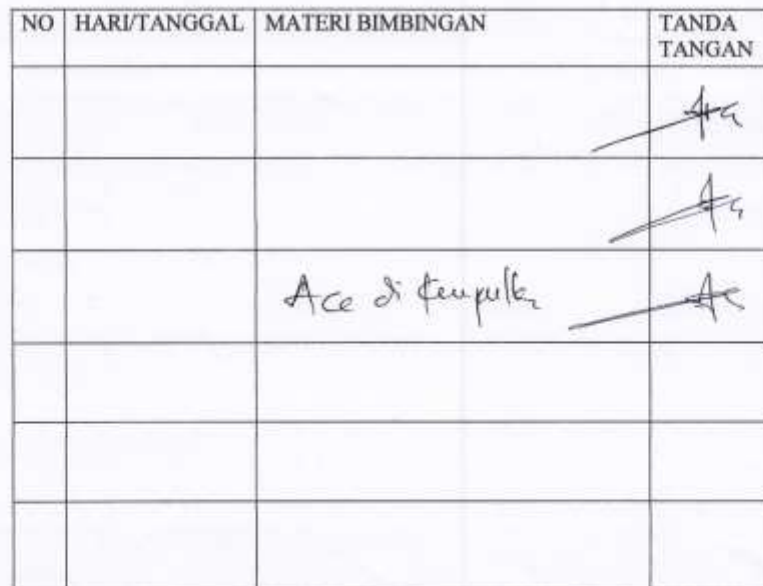 NO HARI/TANGGAL MATERI BIMBINGAN TANDA
TANGAN
Acc di